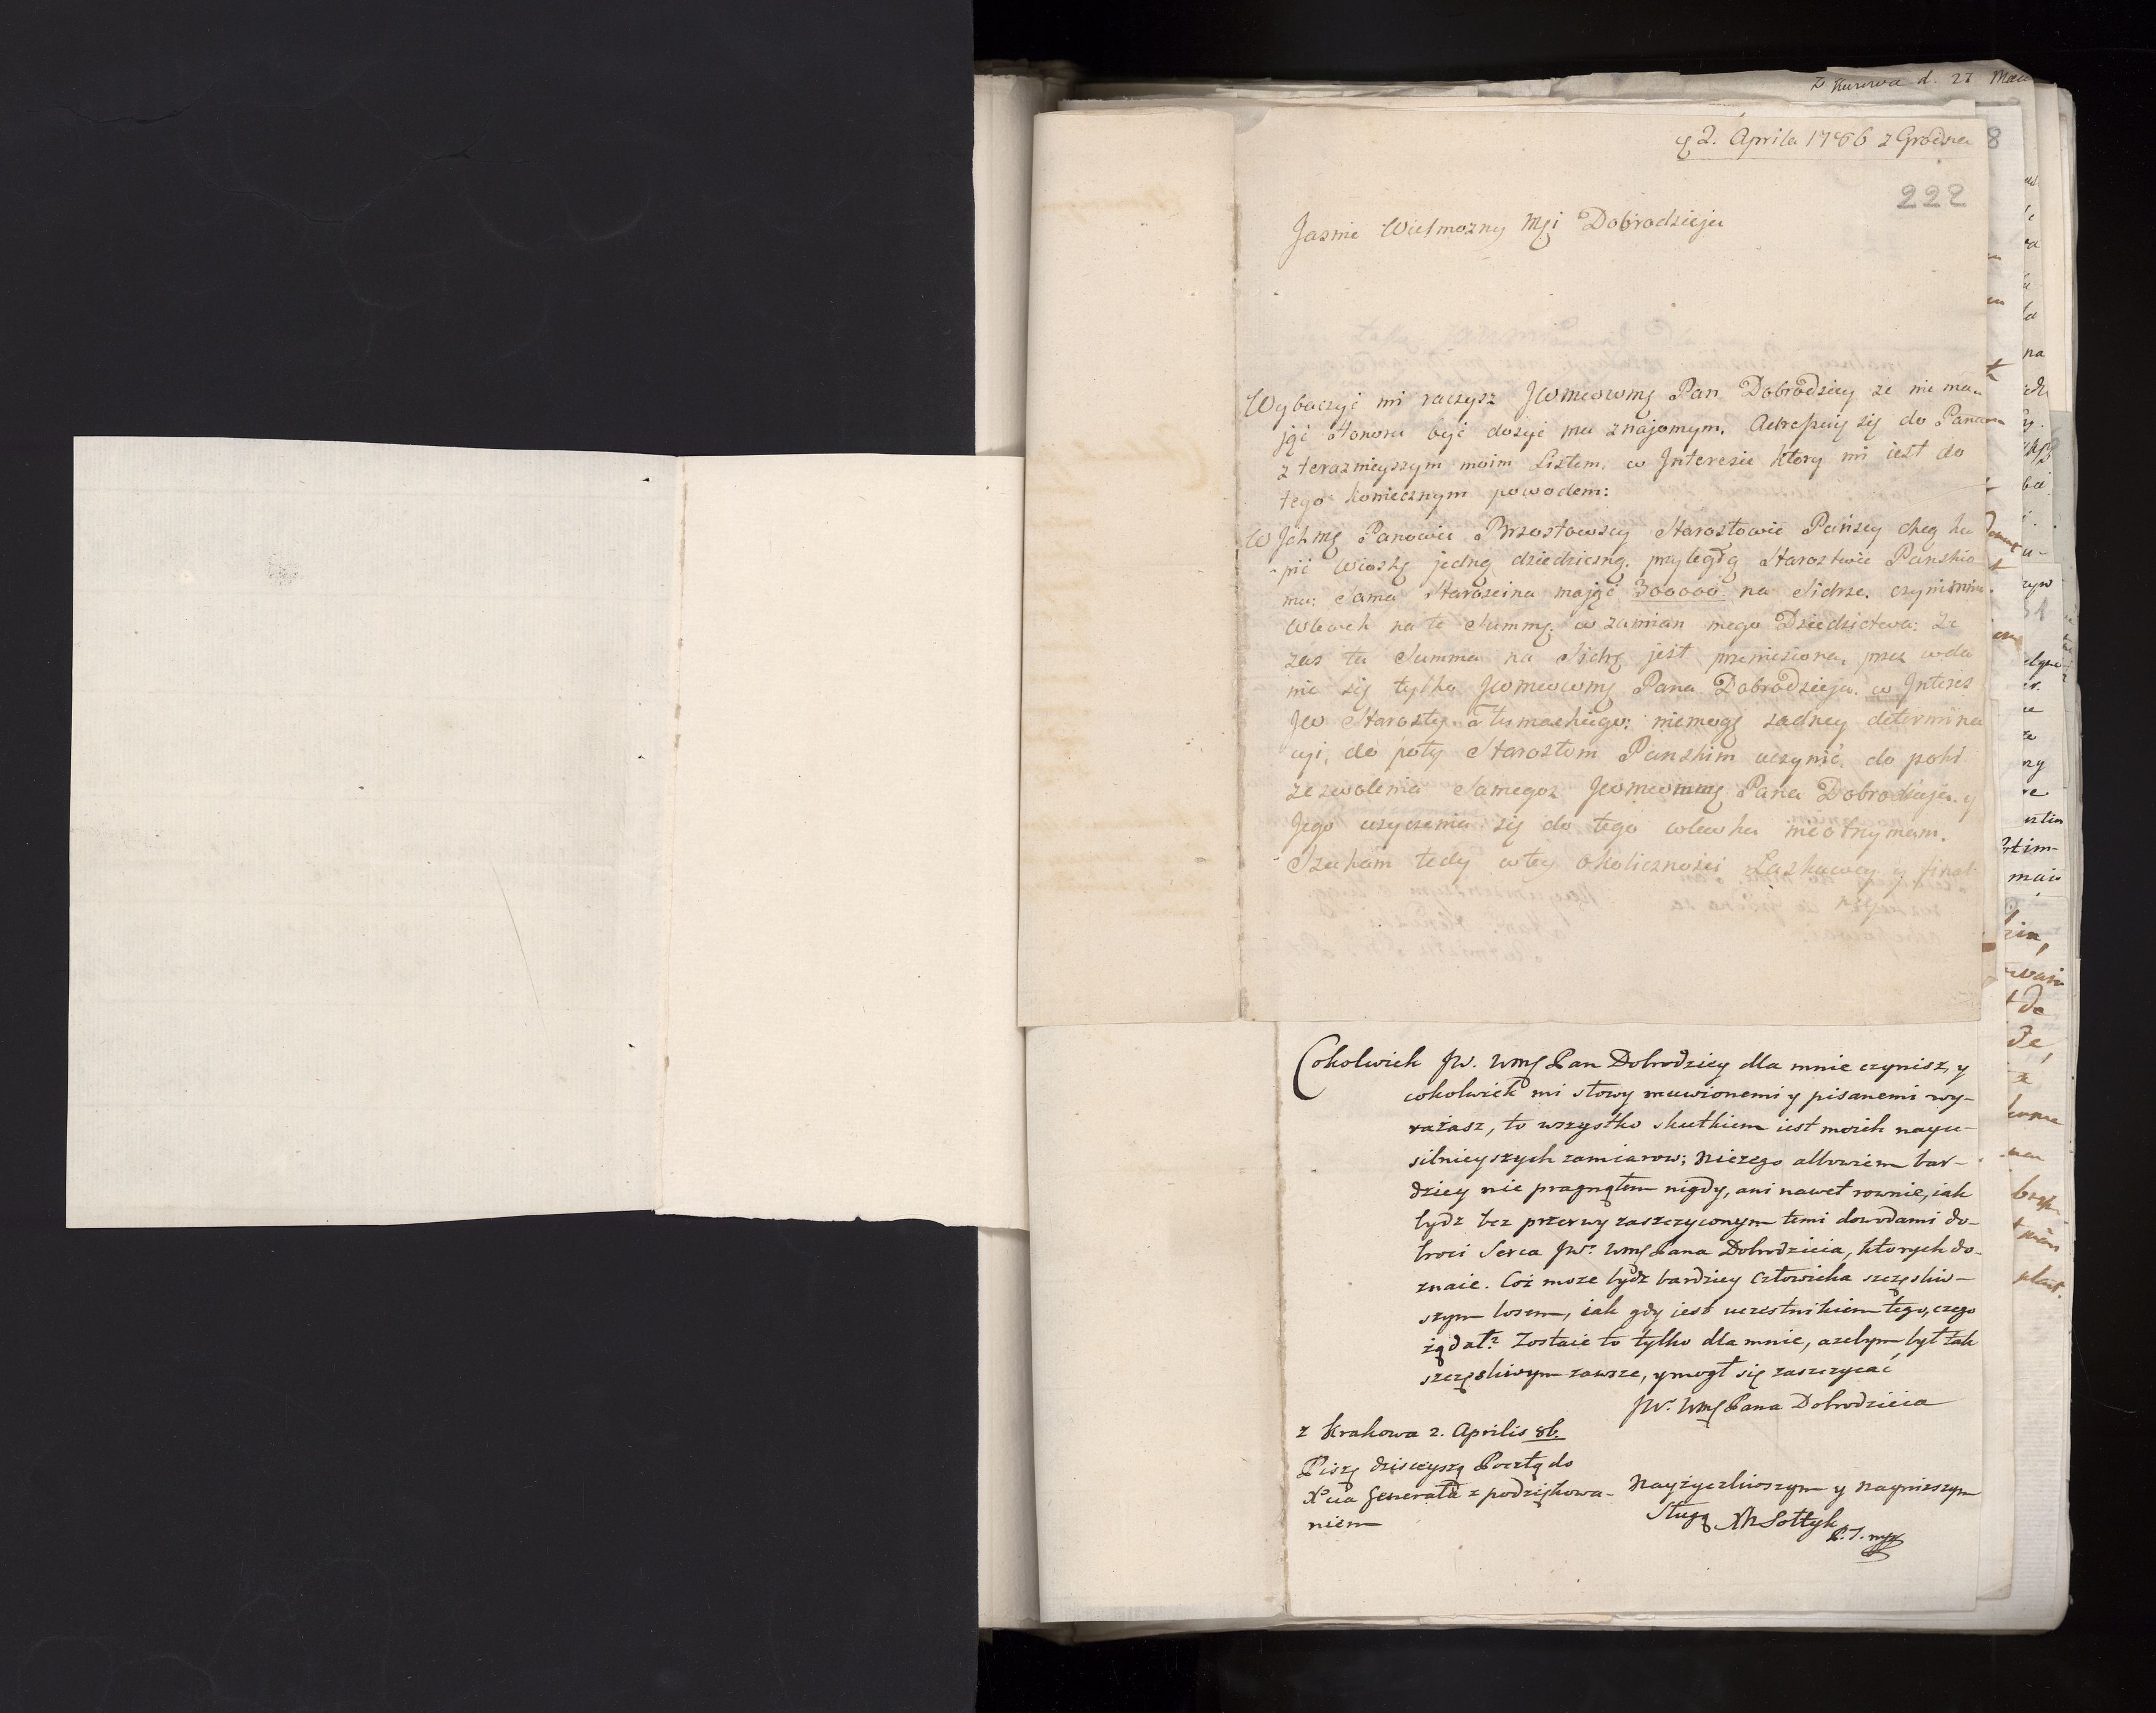 Z Kurowa d. 27
2. Aprila 1786 z Grodna
222
Jasnie Wielmozny Mζi Dobrodzieju
Wybaczyć mi raczysz JWmcwmζ Pan Dobrodziey ze nie ma-
jąc Honoru być dosyć mu znajomym. Adresuię się do Pana
z terazniejszym moim Listem, w Interesie ktory mi iest do
tego koniecznym powodem:
W Jchmζ Panowie Brzostowscy Starostowie Puńscy chcą ku
pić Wioskę jedną dziedziczną, przyległą Starostwie Puńskie
mu: Sama Starościna mając 300000 na Sidrze. czyni mnie
wlewek na te Summę. w zamian mego Dziedzictwa: Ze
zas ta Summa na Sidrę jest przeniesiona, przez wda
nie się tylko JWmcwmζ Pana Dobrodzieja. w Interes
JW Starosty Tłumackiego: niemogę zadney determina
cyi, do poty Starostom Puńskim uczynić, do poki
zezwolenia Samegoz JWmcwmζ Pana Dobrodzieja. y
Jego uzyczenia się do tego wlewku nieotrzymam.
Szukam tedy w tey Okolicznosci Łaskawey y final
ney
Cokolwiek JW. WmζPan Dobrodziey dla mnie czynisz, y
cokolwiek mi słowy muwionemi y pisanemi wy-
rażasz, to wszystko skutkiem iest moich nayu-
silnieyszych zamiarow; niczego albowiem bar-
dziey nie pragnąłem nigdy, ani nawet rownie, iak
bydz bez przerwy zaszczyconym temi dowodami do-
broci Serca JWº WmζPana Dobrodzieia, ktorych do-
znaie. Coż moze bydz bardziey człowieka szczęsliw-
szym losem, iak gdy jest uczestnikiem tego, czego
żądał? Zostaie to tylko dla mnie, azebym był tak
szczęsliwym zawsze, y mogł się zaszczycać
JWº WmζPana Dobrodzieia
z Krakowa 2. Aprilis 86.
Piszę dzisieyszą Pocztą do
Xcia Generała z podziękowa-
niem
Nayżyczliwszym y naynizszym
Sługą Sołtyk